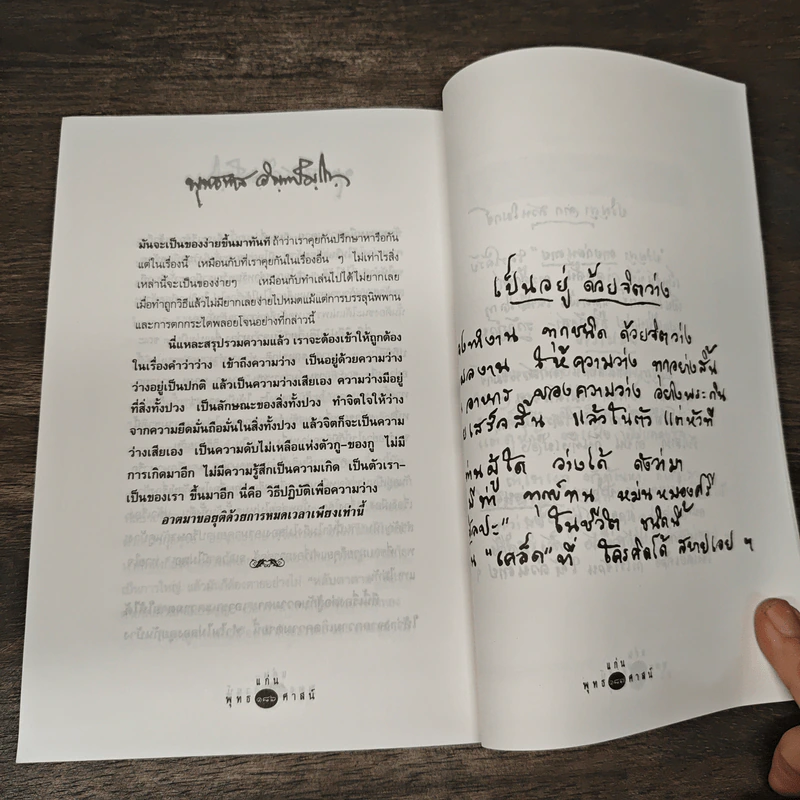 พุทธทาส อินฺทปญฺโญ
มันจะเป็นของง่ายขึ้นมาทันที ถ้าว่าเราคุยกันปรึกษาหารือกัน
แต่ในเรื่องนี้ เหมือนกับที่เราคุยกันในเรื่องอื่น ๆ ไม่เท่าไรสิ่ง
เหล่านี้จะเป็นของง่ายๆ เหมือนกับทำเล่นไปได้ไม่ยากเลย
เมื่อทำถูกวิธีแล้วไม่มียากเลยง่ายไปหมดแม้แต่การบรรลุนิพพาน
และการตกกระไดพลอยโจนอย่างที่กล่าวนี้
นี่แหละสรุปรวมความแล้ว เราจะต้องเข้าให้ถูกต้อง
ในเรื่องคำว่าว่าง เข้าถึงความว่าง เป็นอยู่ด้วยความว่าง
ว่างอยู่เป็นปกติ แล้วเป็นความว่างเสียเอง ความว่างมีอยู่
ที่สิ่งทั้งปวง เป็นลักษณะของสิ่งทั้งปวง ทำจิตใจให้ว่าง
จากความยึดมั่นถือมั่นในสิ่งทั้งปวง แล้วจิตก็จะเป็นความ
ว่างเสียเอง เป็นความดับไม่เหลือแห่งตัวกู-ของกู ไม่มี
การเกิดมาอีก ไม่มีความรู้สึกเป็นความเกิด เป็นตัวเรา-
เป็นของเรา ขึ้นมาอีก นี่คือ วิธีปฏิบัติเพื่อความว่าง
อาตมาขอยุติด้วยการหมดเวลาเพียงเท่านี้
แก่น
พุทธ ๑๘๖ ศาสน์
เป็นอยู่ ด้วยจิตว่าง
ทำงาน ทุกชนิด ด้วยจิตว่าง
ผลงาน ให้ความว่าง ทุกอย่างสิ้น
อาหาร ของความว่าง อย่างพระกิน
เสร็จสิ้น แล้วในตัว แต่หัวที
ท่านผู้ใด ว่างได้ ดังว่ามา
ไม่มีท่า ทุกข์ทน หม่นหมองศรี
"ศิลปะ" ในชีวิต ชนิดนี้
"เคล็ด" ที่ ใครคิดได้ สบายเอย ฯ
แก่น
พุทธ ๑๘๗ ศาสน์